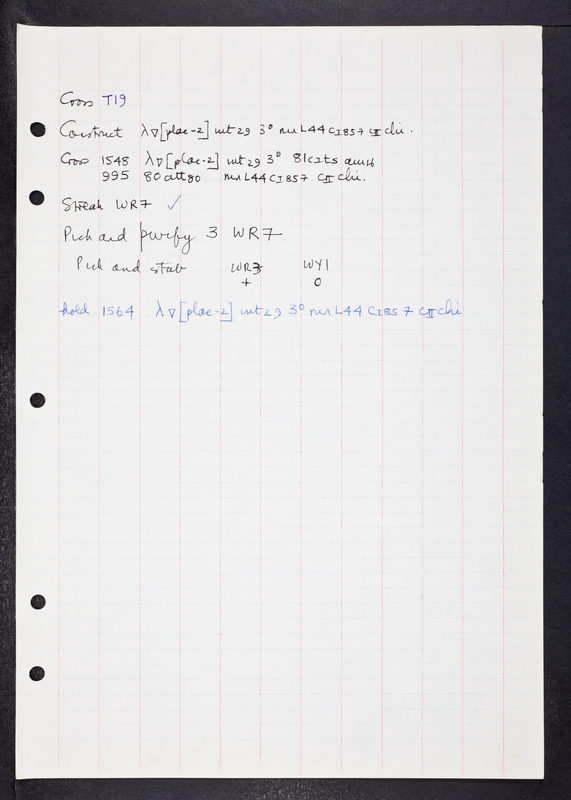 Cross T19
Construct λ∇[plac-2] int29 3° nin L44 cI857 cII chi.
Cross 1548 λ∇[plac-2] int29 3° 81cIts
995 80att80 nin L44 cI857 cII chi.
Streak WR7 ✓
Pick and purify 3 WR7
Pick and stab WR3 WY1
+ 0
hold 1564 λ∇[plac-2] int29 3° nin L44 cI857 cII chi